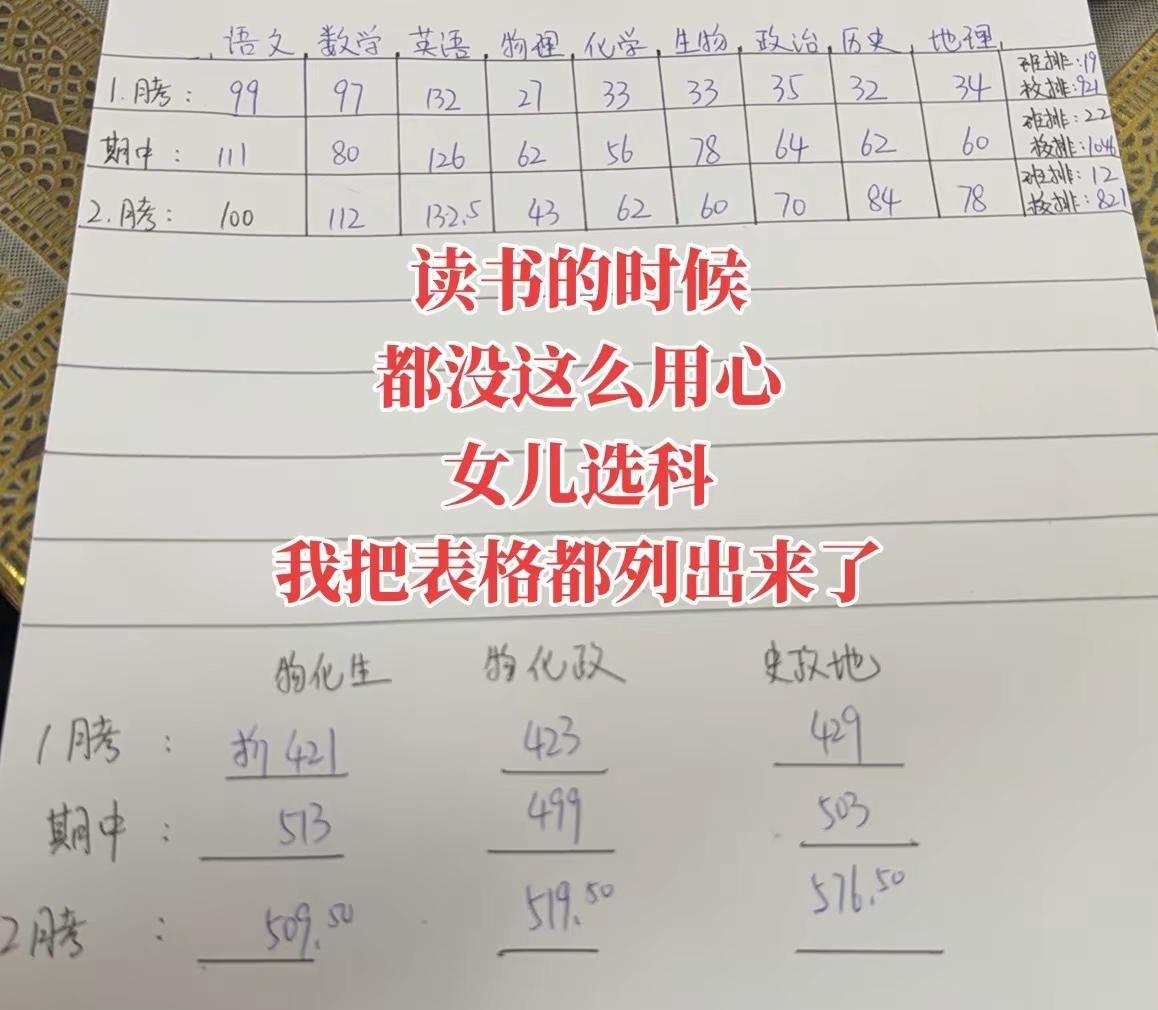 语文 数学 英语 物理 化学 生物 政治 历史 地理
1.月考: 99 97 132 27 33 33 35 32 34 班排:19 校排:921
期中: 111 80 126 62 56 78 64 62 60 班排:22 校排:1046
2.月考: 100 112 132.5 43 62 60 70 84 78 班排:12 校排:821
读书的时候
都没这么用心
女儿选科
我把表格都列出来了
物化生 物化政 史政地
1月考: 421 423 429
期中: 513 499 503
2月考: 509.50 519.50 576.50